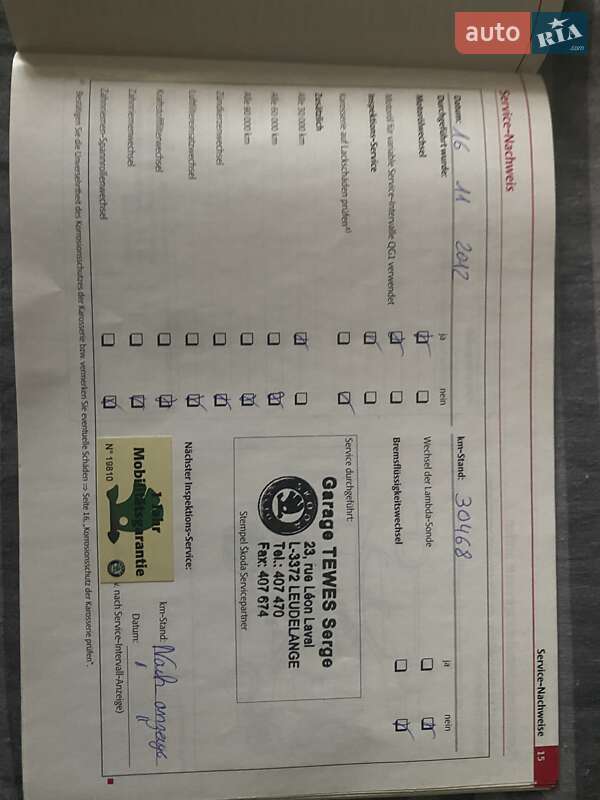 auto RIA.com
Service-Nachweise 15
Service-Nachweis
Datum: 16 11 2012
km-Stand: 30468
Durchgeführt wurde:
ja nein
ja nein
Motorölwechsel
Wechsel der Lambda-Sonde
Motoröl für variable Service-Intervalle QG1 verwendet
Bremsflüssigkeitswechsel
Inspektions-Service
Karosserie auf Lackschäden prüfen
Zusätzlich
Alle 30 000 km
Alle 60 000 km
Alle 90 000 km
Zündkerzenwechsel
Luftfiltereinsatzwechsel
Kraftstoff-Filterwechsel
Zahnriemenwechsel
Zahnriemen-Spannrollenwechsel
Service durchgeführt:
Garage TEWES Serge
23, rue Léon Laval
L-3372 LEUDELANGE
Tel.: 407 470
Fax: 407 674
SKODA
Stempel Skoda Servicepartner
Nächster Inspektions-Service:
km-Stand: Nach anzeige
Datum: "
nach Service-Intervall-Anzeige)
1 Jahr
Mobilitätsgarantie
N° 19810
Bestätigen Sie die Unversehrtheit des Korrosionsschutzes der Karosserie bzw. vermerken Sie eventuelle Schäden ⇒ Seite 16, „Korrosionsschutz der Karosserie prüfen".